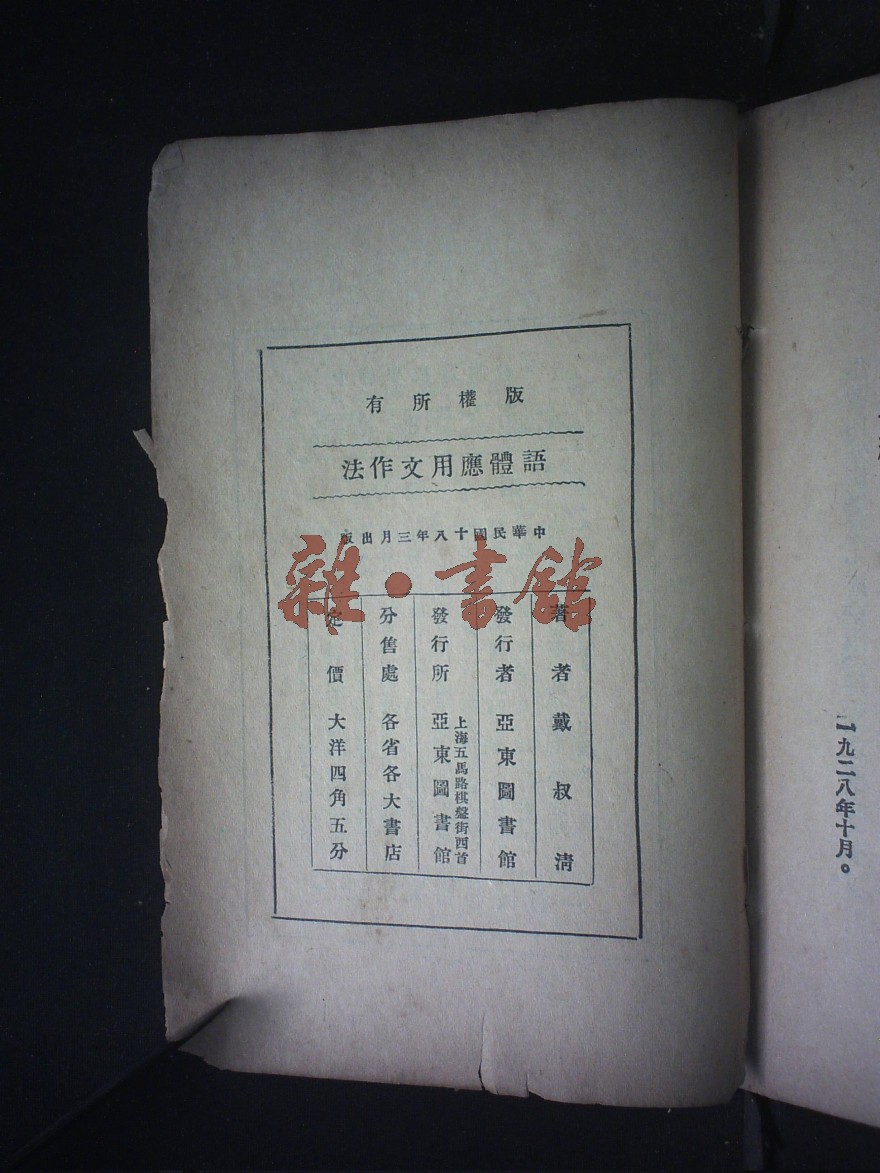 版權所有
語體應用文作法
中華民國十八年三月出版
著者 戴叔清
發行者 亞東圖書館
發行所 上海五馬路棋盤街西首 亞東圖書館
分售處 各省各大書店
定價 大洋四角五分
雜·書館
一九二八年十月。